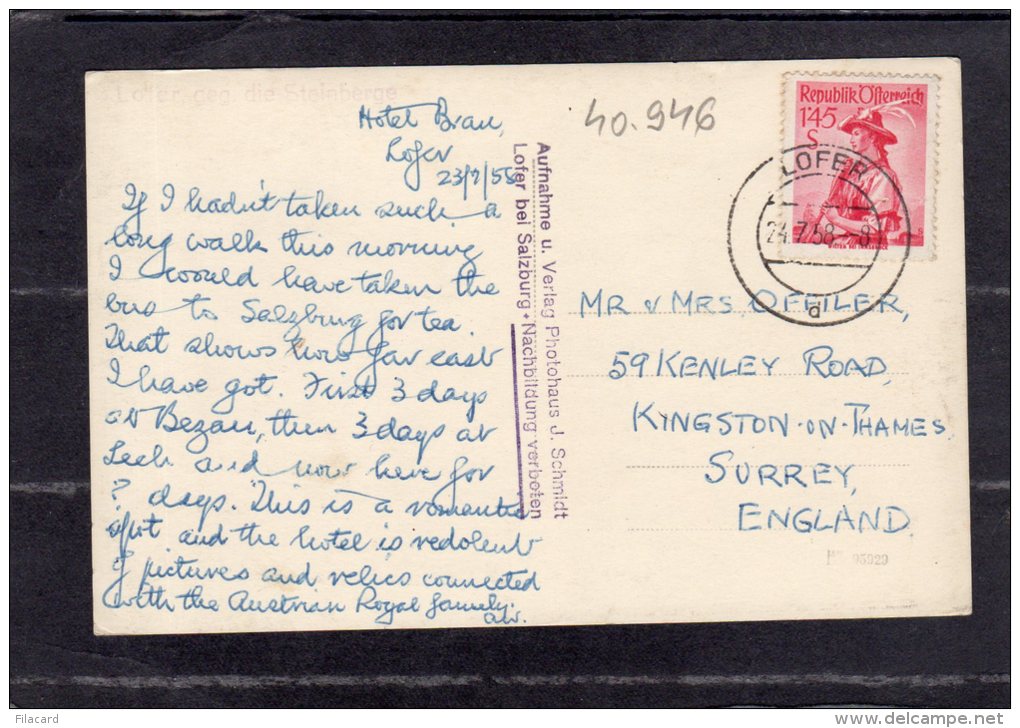 Lofer geg. die Steinberge
Hotel Bräu,
Lofer
23/7/58
If I hadn't taken such a
long walk this morning
I would have taken the
bus to Salzburg for tea.
That shows how far east
I have got. First 3 days
at Bezau, then 3 days at
Lech and now here for
? days. This is a romantic
spot and the hotel is redolent
of pictures and relics connected
with the Austrian Royal family.
aw.
Aufnahme u. Verlag Photohaus J. Schmidt
Lofer bei Salzburg • Nachbildung verboten
40.946
Republik Österreich
1'45
S
LOFER
24.7.58--8
a
MR & MRS OFFILER,
59 KENLEY ROAD,
KINGSTON-ON-THAMES
SURREY,
ENGLAND.
95929
Filacard
delcampe.net